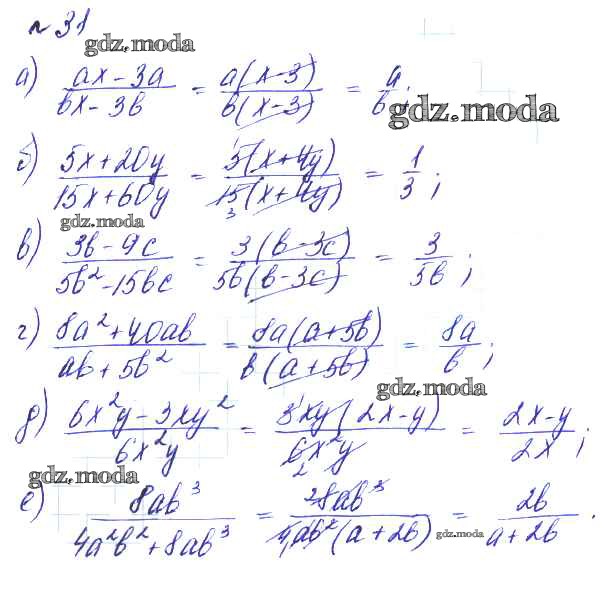 № 31
gdz.moda
а) (ax - 3a)/(bx - 3b) = a(x - 3)/b(x - 3) = a/b;
gdz.moda
б) (5x + 20y)/(15x + 60y) = 5(x + 4y)/15(x + 4y) = 1/3;
gdz.moda
в) (3b - 9c)/(5b² - 15bc) = 3(b - 3c)/5b(b - 3c) = 3/5b;
г) (8a² + 40ab)/(ab + 5b²) = 8a(a + 5b)/b(a + 5b) = 8a/b;
gdz.moda
д) (6x²y - 3xy²)/6x²y = 3xy(2x - y)/6x²y = (2x - y)/2x;
gdz.moda
е) 8ab³/(4a²b² + 8ab³) = 8ab³/4ab²(a + 2b) = 2b/(a + 2b).
gdz.moda